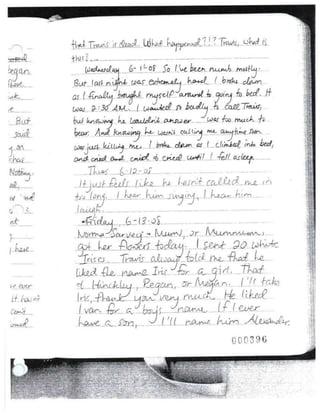 that Travis is dead. What happened?!? Travis, what is
this?...
Wednesday 6-11-08 So I've been numb mostly.
But last night was extremely hard. I broke down
as I finally brought myself around to going to bed. It
was 2:30 AM. I wanted so badly to call Travis,
but knowing he wouldn't answer was too much to
bear. And knowing he wasn't calling me anytime soon
was just killing me. I broke down as I climbed into bed,
and cried and cried & cried until I fell asleep.
Thurs 6-12-08
It just feels like he hasn't called me in
too long. I hear him singing, I hear him
laugh.
Friday, 6-13-08
Norma Sarvey - Mum, or Mummum,
got her flowers today. I sent 20 white
Irises. Travis always told me that he
liked the name Iris for a girl. That
of Hinckley, Regan, or Megan. I'll take
Iris, thank you very much. He liked
Ivan for a boy's name. If I ever
have a son, I'll name him Alexander.
000396
egan
But
said
Nothing
I have